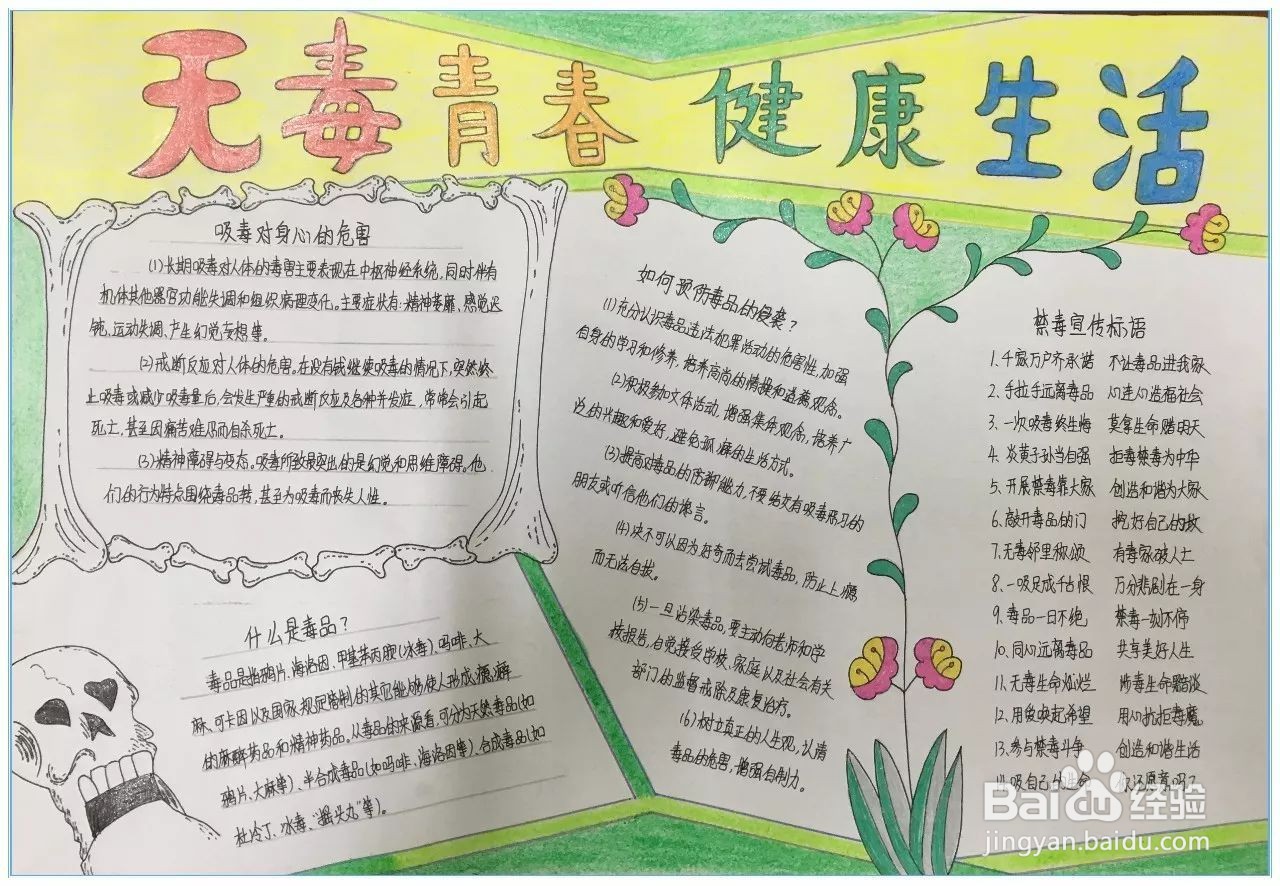 无毒青春 健康生活
吸毒对身心的危害
(1)长期吸毒对人体的毒害主要表现在中枢神经系统,同时伴有
机体其他器官功能失调和组织病理变化。主要症状有:精神萎靡、感觉迟
钝、运动失调、产生幻觉妄想等。
(2)戒断反应对人体的危害。在没有钱继续吸毒的情况下,突然终
止吸毒或减少吸毒量后,会发生严重的戒断反应及各种并发症,常常会引起
死亡,甚至因痛苦难忍而自杀死亡。
(3)精神障碍与变态。吸毒所致最突出的是幻觉和思维障碍。他
们的行为特点围绕毒品转,甚至为吸毒而丧失人性。
什么是毒品?
毒品是指鸦片、海洛因、甲基苯丙胺(冰毒)、吗啡、大
麻、可卡因以及国家规定管制的其它能够使人形成瘾癖
的麻醉药品和精神药品。从毒品的来源看,可分为天然毒品(如
鸦片、大麻等)、半合成毒品(如吗啡、海洛因等)、合成毒品(如
杜冷丁、冰毒、“摇头丸”等)。
如何预防毒品的侵袭?
(1)充分认识毒品违法犯罪活动的危害性,加强
自身的学习和修养,培养高尚的情操和道德观念。
(2)积极参加文体活动,增强集体观念,培养广
泛的兴趣和爱好,避免孤僻的生活方式。
(3)提高对毒品的防御能力,不要结交有吸毒恶习的
朋友或听信他们的谗言。
(4)决不可以因为好奇而去尝试毒品,防止上瘾
而无法自拔。
(5)一旦沾染毒品,要主动向老师和学
校报告,自觉接受学校、家庭以及社会有关
部门的监督戒除及康复治疗。
(6)树立真正的人生观,认清
毒品的危害,增强自制力。
禁毒宣传标语
1.千家万户齐承诺 不让毒品进我家
2.手拉手远离毒品 心连心造福社会
3.一次吸毒终生悔 莫拿生命赌明天
4.炎黄子孙当自强 拒毒禁毒为中华
5.开展禁毒靠大家 创造和谐为大家
6.敲开毒品的门 挖好自己的坟
7.无毒邻里称颂 有毒家破人亡
8.一吸足成千古恨 万分悲剧在一身
9.毒品一日不绝 禁毒一刻不停
10.同心远离毒品 共享美好人生
11.无毒生命灿烂 涉毒生命黯淡
12.用爱唤起希望 用心抗拒毒魔
13.参与禁毒斗争 创造和谐生活
14.吸自己的生命 你还愿意吗?
Baidu经验
jingyan.baidu.com